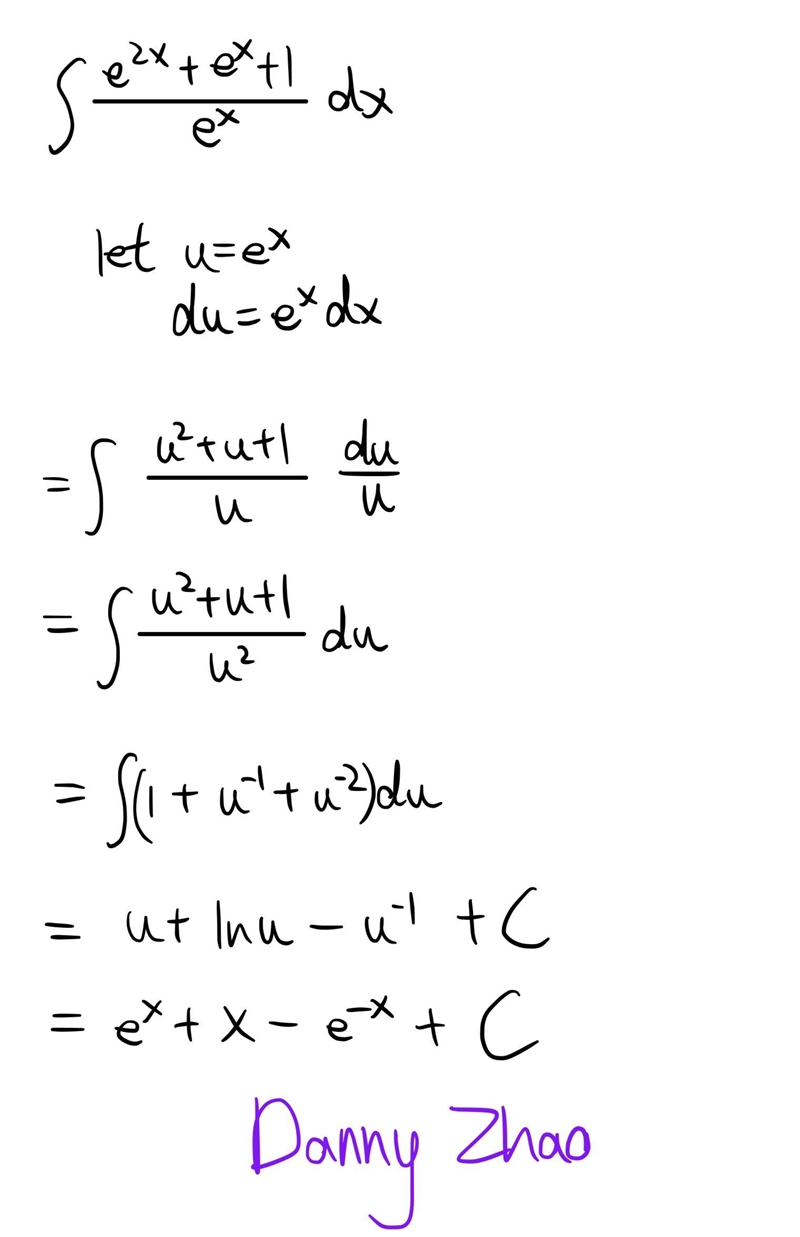 ∫ (e^{2x} + e^x + 1)/e^x dx
let u = e^x
du = e^x dx
= ∫ (u² + u + 1)/u du/u
= ∫ (u² + u + 1)/u² du
= ∫(1 + u^{-1} + u^{-2})du
= u + ln u − u^{-1} + C
= e^x + x − e^{-x} + C
Danny Zhao